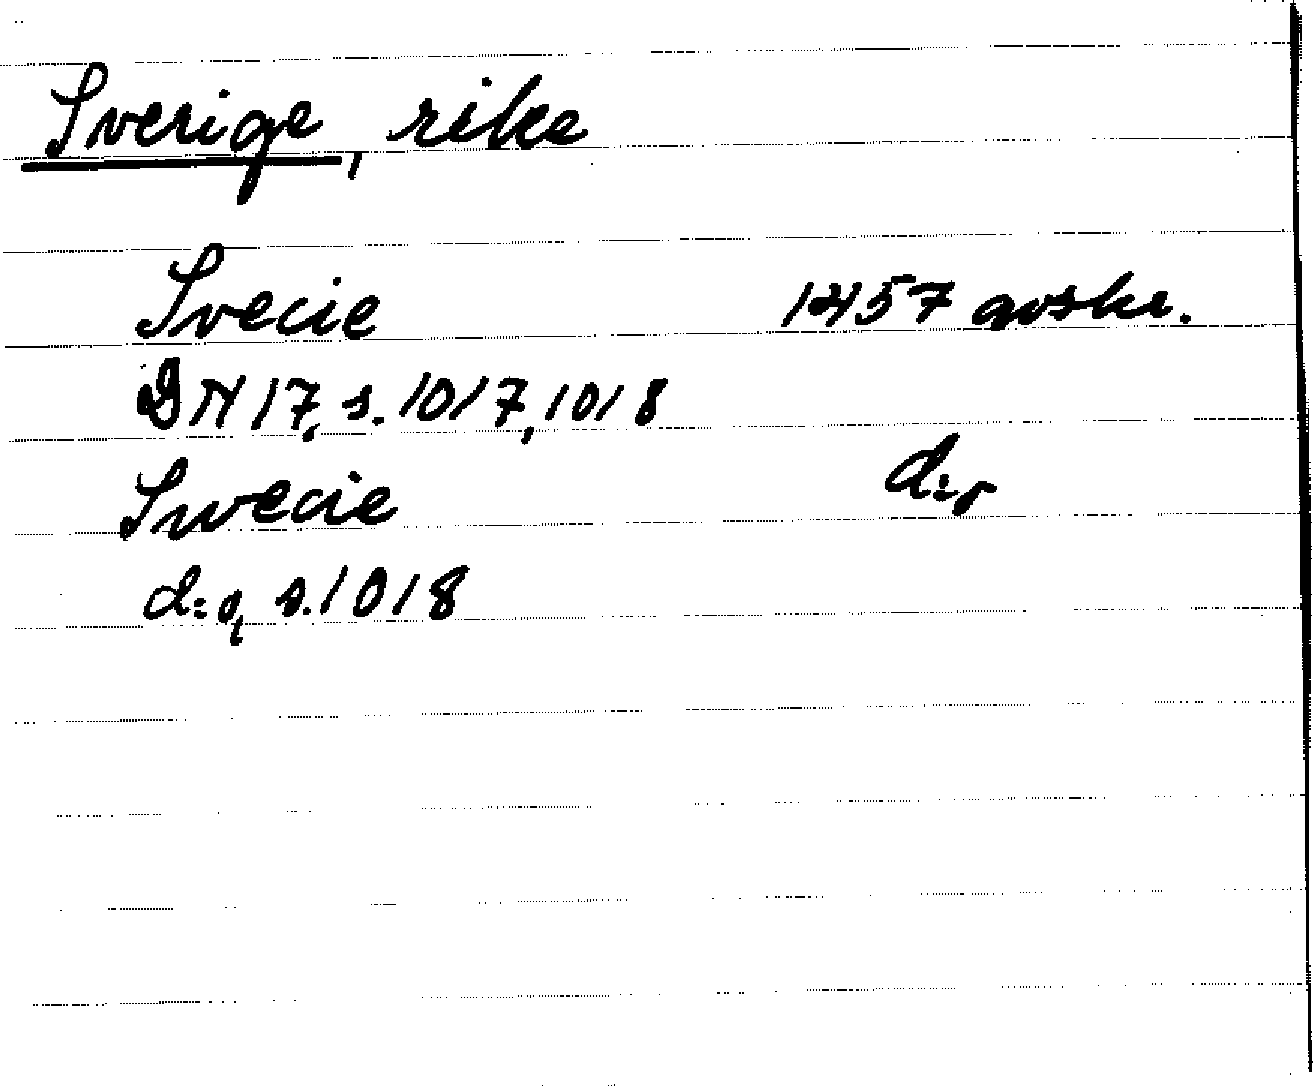 Sverige, rike
Svecie 1457 avskr.
DN 17, s. 1017, 1018
Swecie d:o
d:o, s. 1018